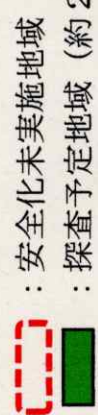 ：安全化未実施地域
：探査予定地域（約2